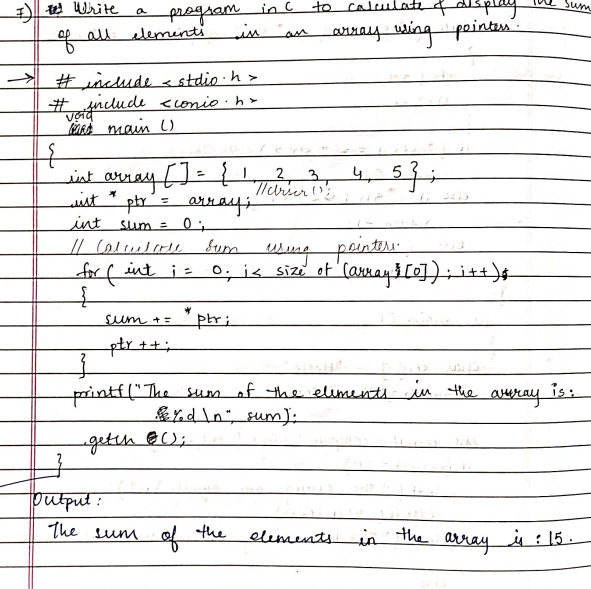 7) Write a program in C to calculate & display the sum
of all elements in an array using pointers.
→ # include < stdio.h >
# include <conio.h>
void main ()
{
int array [ ] = { 1, 2, 3, 4, 5 } ;
int * ptr = array; //clrscr();
int sum = 0 ;
// Calculate Sum using pointers.
for ( int i = 0; i < size of (array [0]) ; i++)
{
sum += * ptr;
ptr ++ ;
}
printf ("The sum of the elements in the array is:
%d \n", sum);
getch ();
}
Output :
The sum of the elements in the array is : 15.